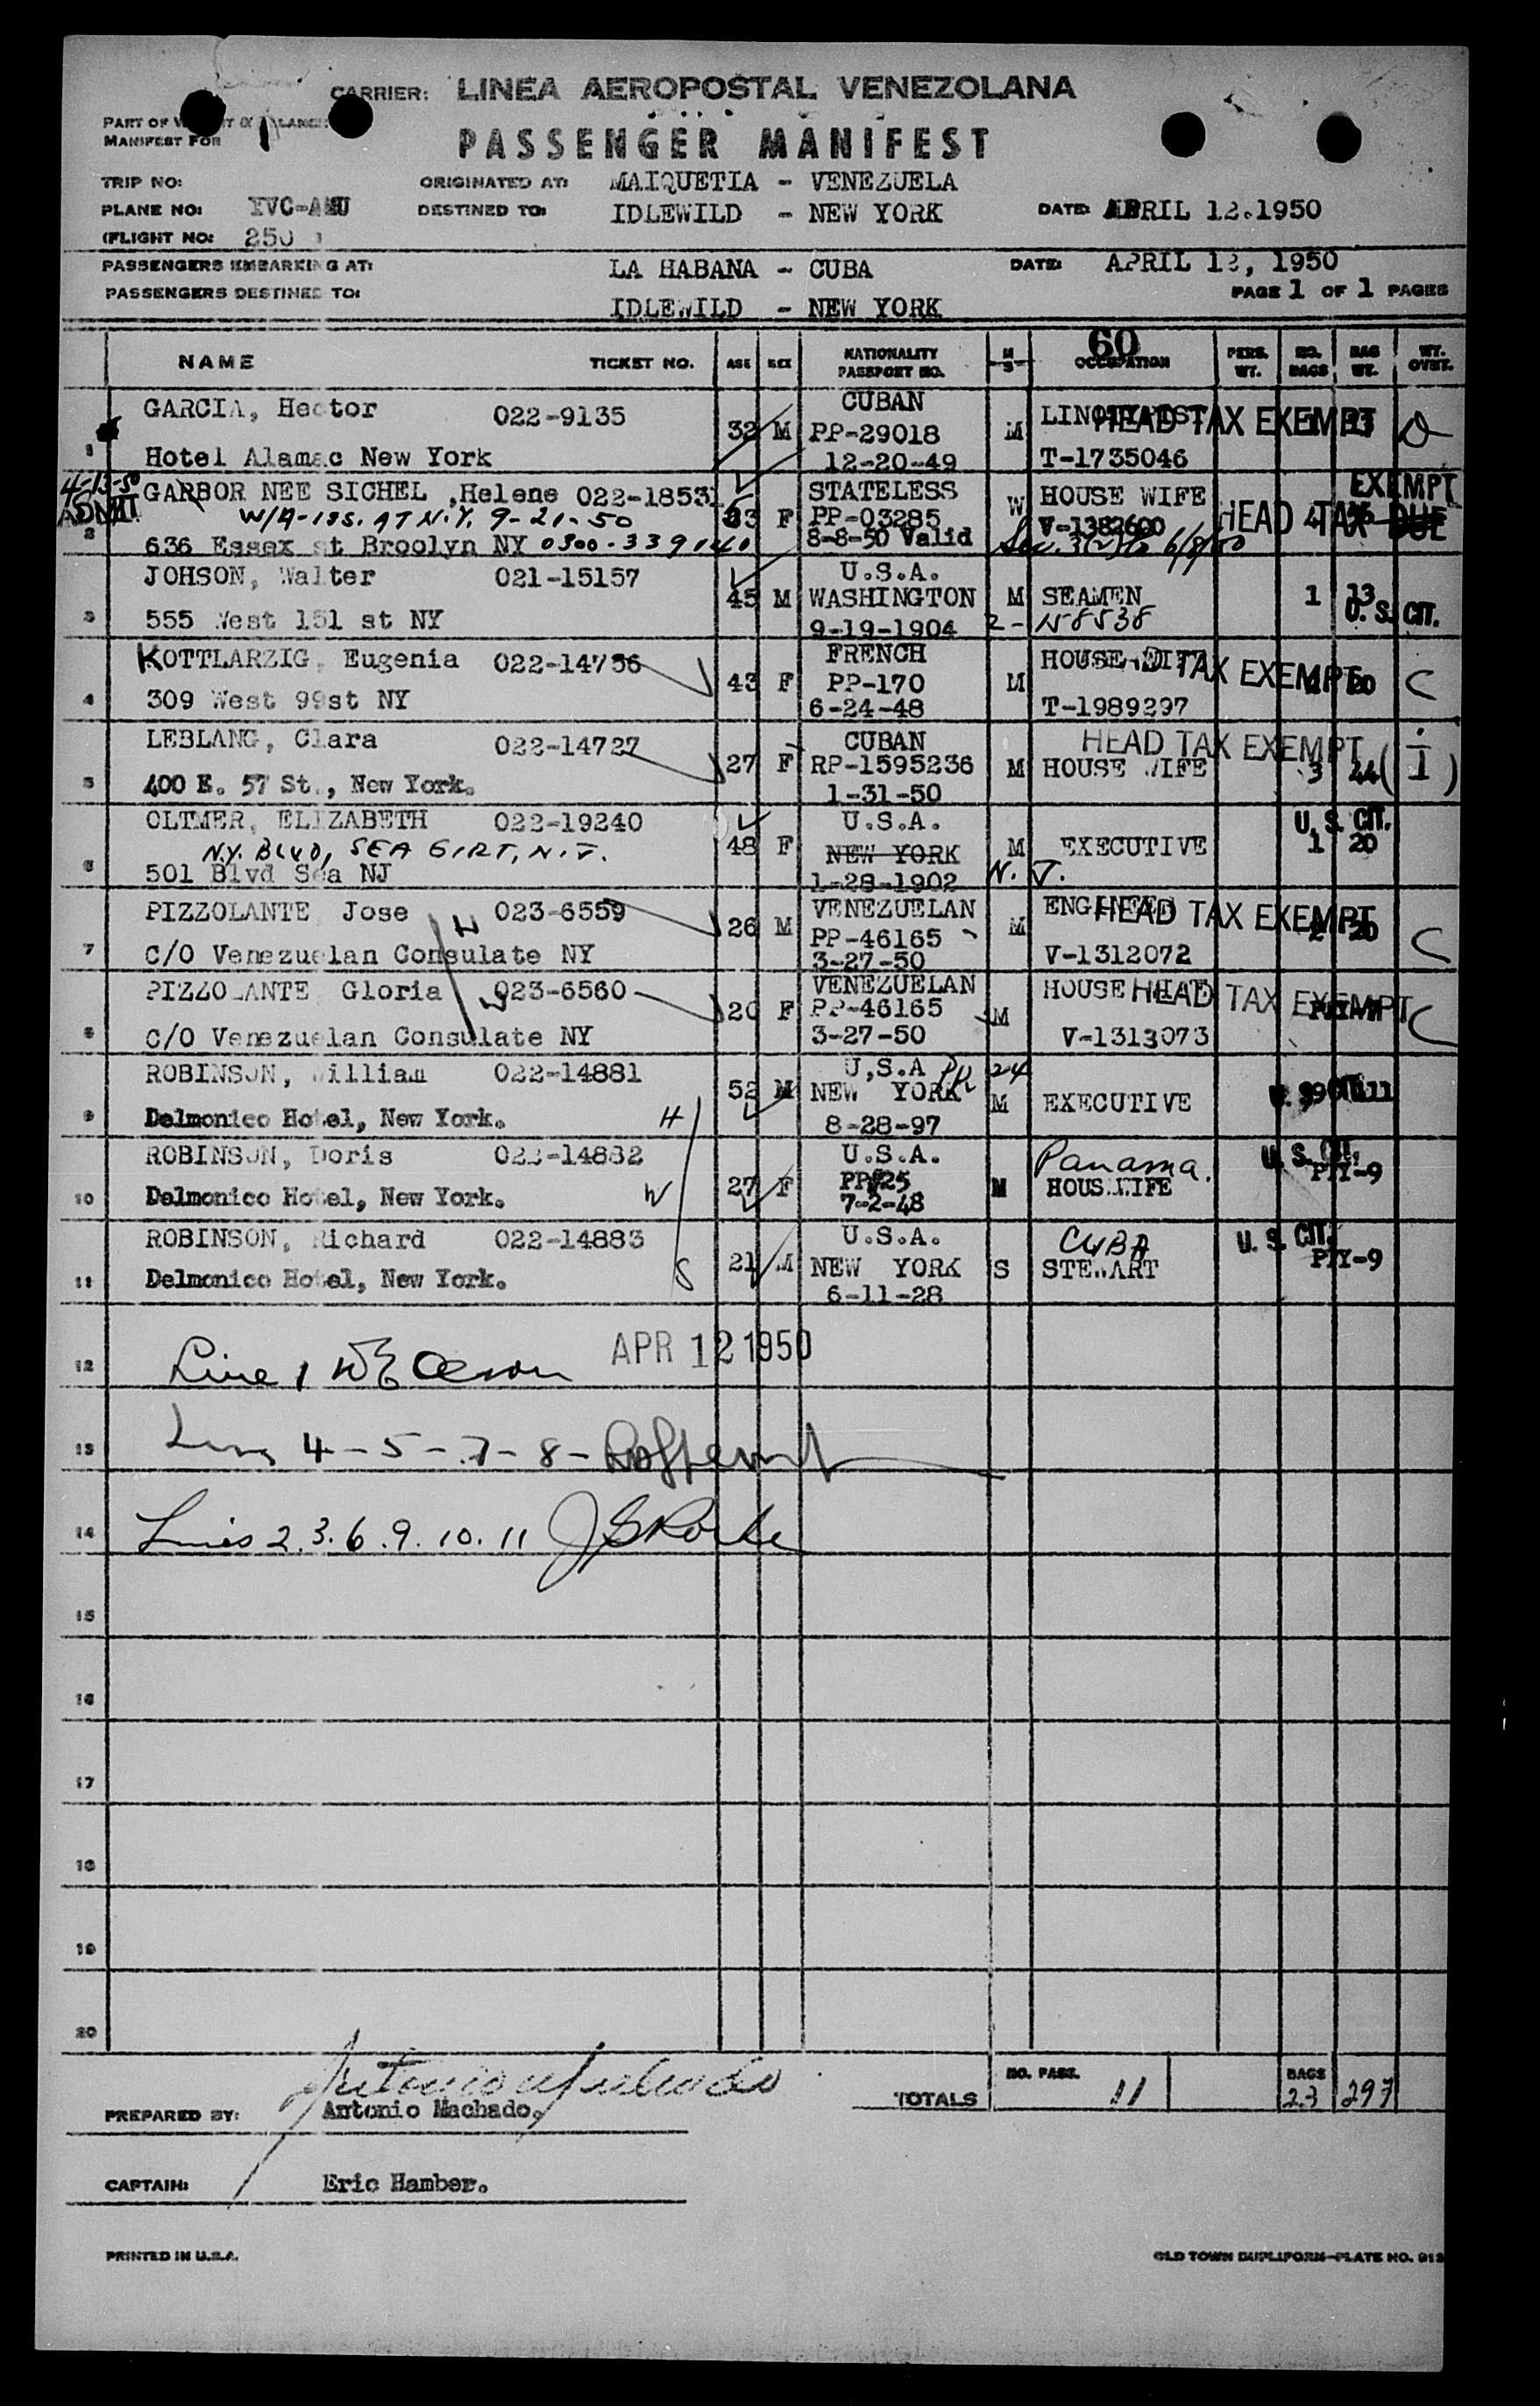 CARRIER: LINEA AEROPOSTAL VENEZOLANA
PART OF
MANIFEST FOR
PASSENGER MANIFEST
TRIP NO: ORIGINATED AT: MAIQUETIA - VENEZUELA
PLANE NO: DESTINED TO: IDLEWILD - NEW YORK DATE: APRIL 12.1950
FLIGHT NO: 250
PASSENGERS EMBARKING AT: LA HABANA - CUBA DATE: APRIL 12, 1950
PASSENGERS DESTINED TO: IDLEWILD - NEW YORK PAGE 1 OF 1 PAGES
60
NAME TICKET NO. AGE SEX NATIONALITY PASSPORT NO. M S OCCUPATION PERS. WT. NO. BAGS BAG WT. WT. OVWT.
GARCIA, Hector 022-9135 CUBAN
1 32 M PP-29018 M HEAD TAX EXEMPT
Hotel Alamac New York 12-20-49 T-1735046
4-13-50 GARBOR NEE SICHEL ,Helene 022-18531 STATELESS HOUSE WIFE EXEMPT
ADMIT. W/A-iss. AT N.Y. 9-21-50 F PP-03285 W V-1382600 HEAD TAX DUE
2 636 Essex st Broolyn NY 0300-339140 8-8-50 Valid
JOHSON, Walter 021-15157 U.S.A.
45 M WASHINGTON M SEAMEN 1 13
3 555 West 151 st NY 9-19-1904 2- N8538 U.S. CIT.
KOTTLARZIG, Eugenia 022-14756 FRENCH HOUSE WIFE
43 F PP-170 M TAX EXEMPT C
4 309 West 99st NY 6-24-48 T-1989297
LEBLANG, Clara 022-14727 CUBAN HEAD TAX EXEMPT
27 F RP-1595236 M HOUSE WIFE 3 44 (i)
5 400 E. 57 St., New York. 1-31-50
OLTMER, ELIZABETH 022-19240 U.S.A. U.S. CIT.
N.Y. BLVD, SEA GIRT, N.J. 48 F NEW YORK M EXECUTIVE 1 20
6 501 Blvd Sea NJ 1-28-1902 N. J.
PIZZOLANTE Jose 023-6559 VENEZUELAN ENGINEER HEAD TAX EXEMPT
H 26 M PP-46165 M 2 20 C
7 C/O Venezuelan Consulate NY 3-27-50 V-1312072
PIZZOLANTE Gloria 023-6560 VENEZUELAN HOUSE HEAD TAX EXEMPT
W 20 F PP-46165 M C
8 C/O Venezuelan Consulate NY 3-27-50 V-1313073
ROBINSON, William 022-14881 U.S.A
52 M NEW YORK M EXECUTIVE
9 Delmonico Hotel, New York. H 8-28-97
ROBINSON, Doris 022-14882 U.S.A. Panama. U.S. CIT.
27 F M HOUSEWIFE PTY-9
10 Delmonico Hotel, New York. W 7-2-48
ROBINSON, Richard 022-14883 U.S.A. CUBA U.S. CIT.
21 M NEW YORK S STEWART PTY-9
11 Delmonico Hotel, New York. S 6-11-28
12 Line 1 APR 12 1950
13 Lines 4-5-7-8-
14 Lines 2.3.6.9.10.11
15
16
17
18
19
20
TOTALS NO. PASS. 11 BAGS 23 297
PREPARED BY: Antonio Machado.
CAPTAIN: Eric Hamber.
PRINTED IN U.S.A. OLD TOWN DUPLIFORM-PLATE NO. 913